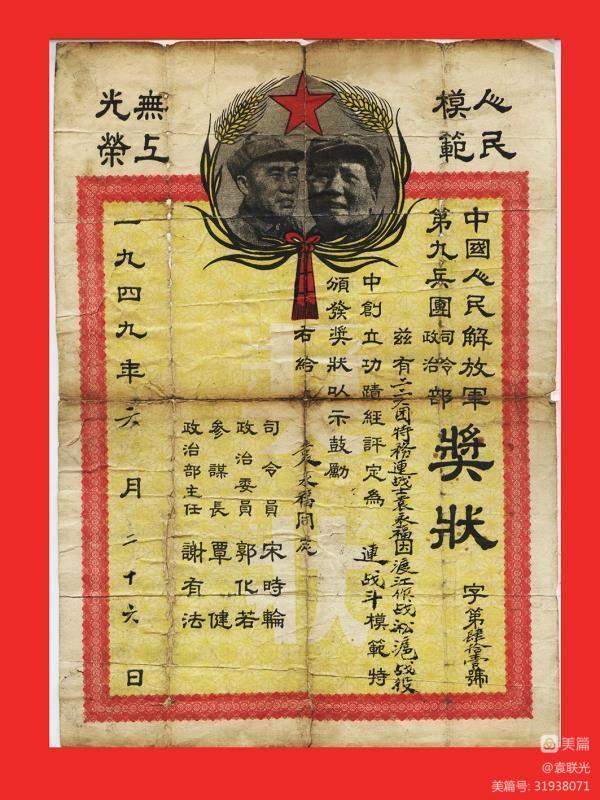 人民
模範
無上
光榮
中國人民解放軍
第九兵團司令政治部
獎狀
字第肆拾壹號
茲有二二六团特務連战士袁永福因渡江作战淞滬战役
中創立功蹟經評定為連战斗模範特
頒發獎狀以示鼓勵
右給袁永福同志
司令員 宋時輪
政治委員 郭化若
參謀長 覃健
政治部主任 謝有法
一九四九年六月二十六日
美篇
@袁联光
美篇号: 31938071